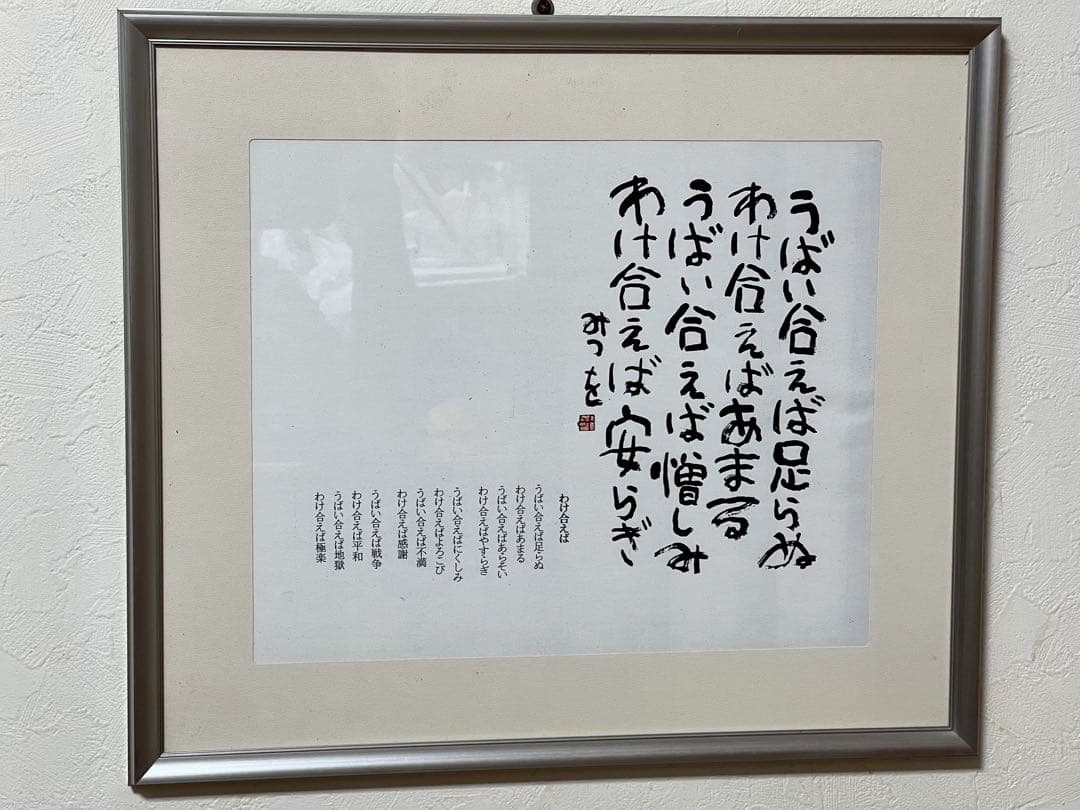 うばい合えば足らぬ
わけ合えばあまる
うばい合えば憎しみ
わけ合えば安らぎ
みつを
わけ合えば
うばい合えば足らぬ
わけ合えばあまる
うばい合えばあらそい
わけ合えばやすらぎ
うばい合えばにくしみ
わけ合えばよろこび
うばい合えば不満
わけ合えば感謝
うばい合えば戦争
わけ合えば平和
うばい合えば地獄
わけ合えば極楽